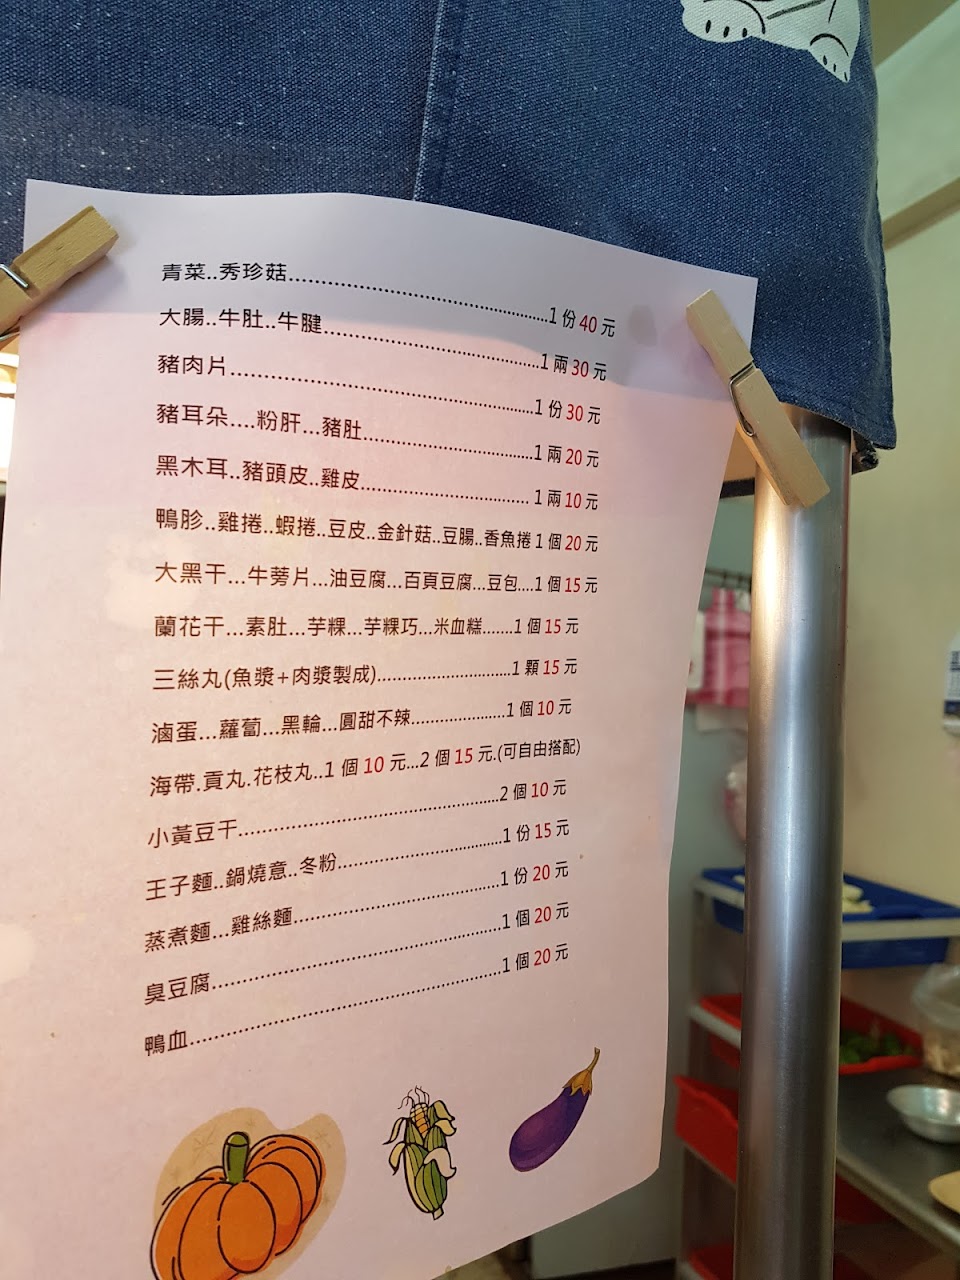 青菜..秀珍菇...............................................1 份 40 元
大腸..牛肚..牛腱.......................................1 兩 30 元
豬肉片......................................................1 份 30 元
豬耳朵....粉肝...豬肚................................1 兩 20 元
黑木耳..豬頭皮..雞皮............................... 1 兩 10 元
鴨胗..雞捲..蝦捲..豆皮..金針菇..豆腸..香魚捲 1 個 20 元
大黑干...牛蒡片...油豆腐...百頁豆腐...豆包....1 個 15 元
蘭花干...素肚...芋粿...芋粿巧...米血糕.......1 個 15 元
三絲丸(魚漿+肉漿製成)...........................1 顆 15 元
滷蛋...蘿蔔...黑輪...圓甜不辣.....................1 個 10 元
海帶.貢丸.花枝丸..1 個 10 元...2 個 15 元.(可自由搭配)
小黃豆干...................................................2 個 10 元
王子麵..鍋燒意..冬粉................................1 份 15 元
蒸煮麵...雞絲麵.........................................1 份 20 元
臭豆腐......................................................1 個 20 元
鴨血..........................................................1 個 20 元